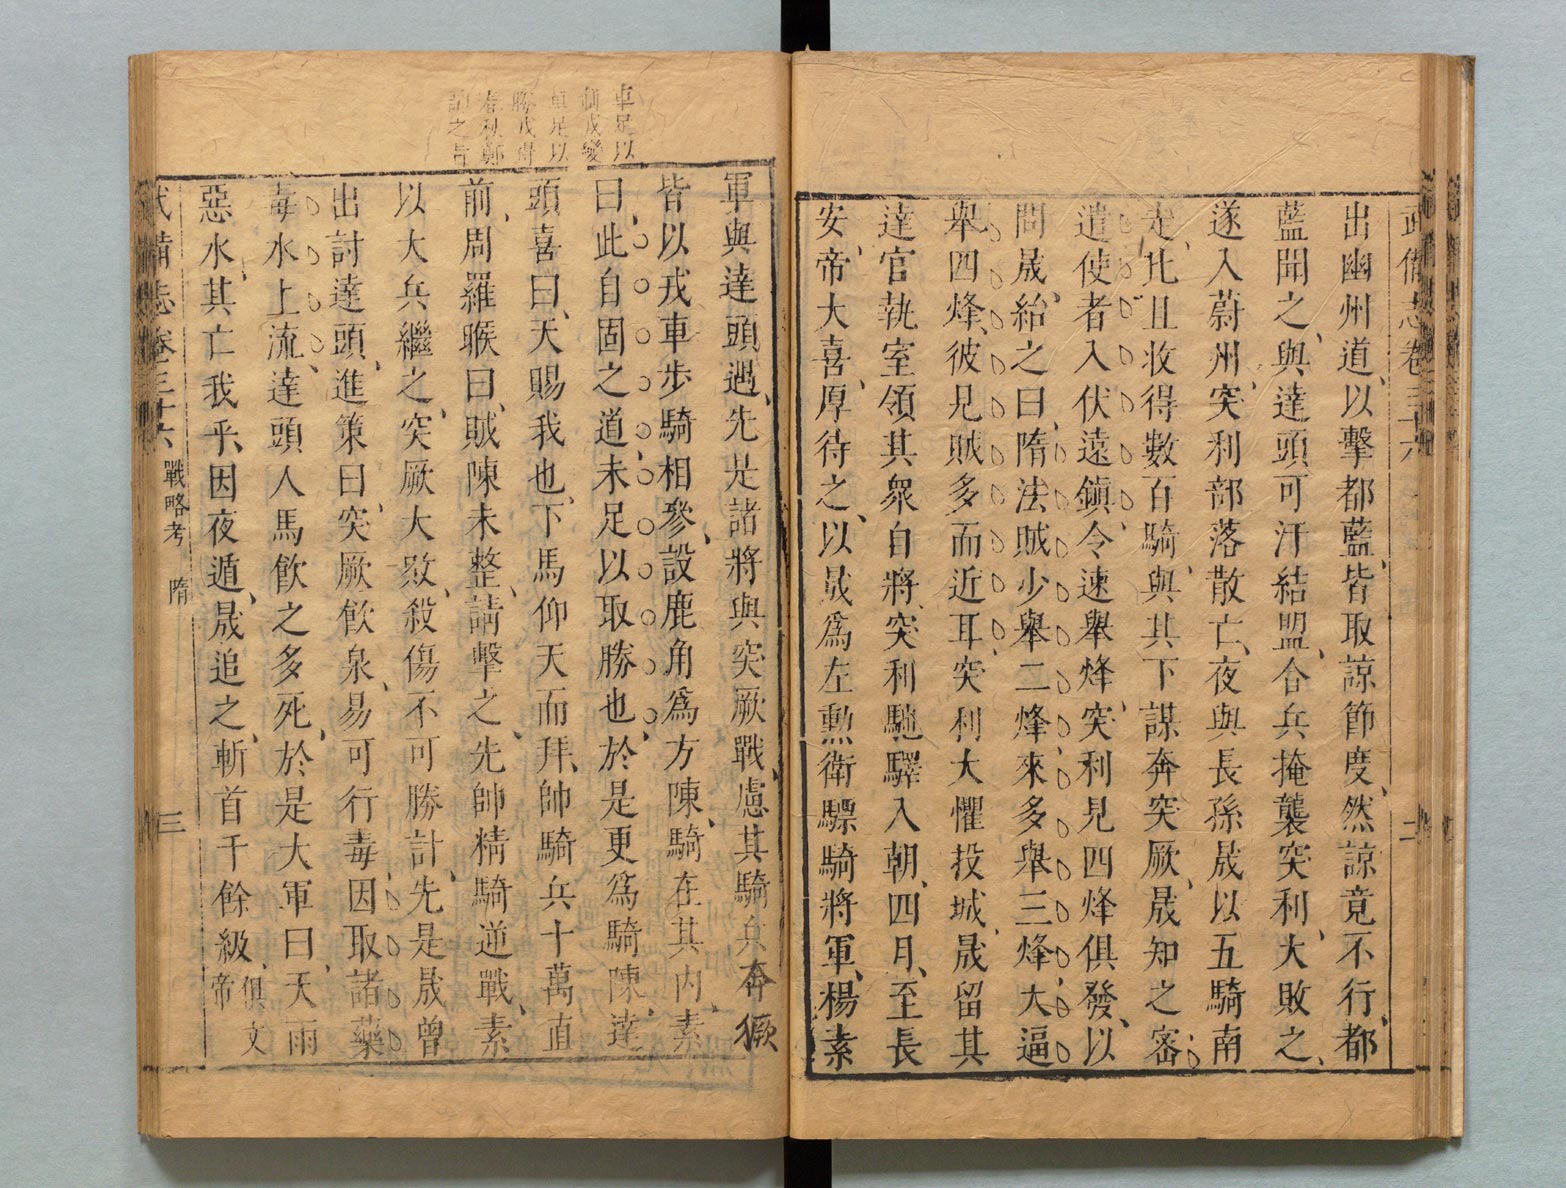 武備志卷三十六
二
出幽州道以擊都藍皆取諒節度然諒竟不行都
藍聞之與達頭可汗結盟合兵掩襲突利大敗之
遂入蔚州突利部落散亡夜與長孫晟以五騎南
走比旦收得數百騎與其下謀奔突厥晟知之密
遣使者入伏遠鎮令速舉烽突利見四烽俱發以
問晟紿之曰隋法賊少舉二烽來多舉三烽大逼
舉四烽彼見賊多而近耳突利大懼投城晟留其
達官執室領其衆自將突利馳驛入朝四月至長
安帝大喜厚待之以晟爲左勲衛驃騎將軍楊素
車足以
制戎變
車足以
勝戎毋
春秋鄭
詔之旨
軍與達頭遇先是諸將與突厥戰慮其騎兵奔獗
皆以戎車步騎相參設鹿角爲方陳騎在其内素
曰此自固之道未足以取勝也於是更爲騎陳達
頭喜曰天賜我也下馬仰天而拜帥騎兵十萬直
前周羅睺曰賊陳未整請擊之先帥精騎逆戰素
以大兵繼之突厥大敗殺傷不可勝計先是晟曾
出討達頭進策曰突厥飲泉易可行毒因取諸藥
毒水上流達頭人馬飲之多死於是大軍曰天雨
惡水其亡我乎因夜遁晟追之斬首千餘級俱文帝
武備志卷三十六 戰略考 隋
三